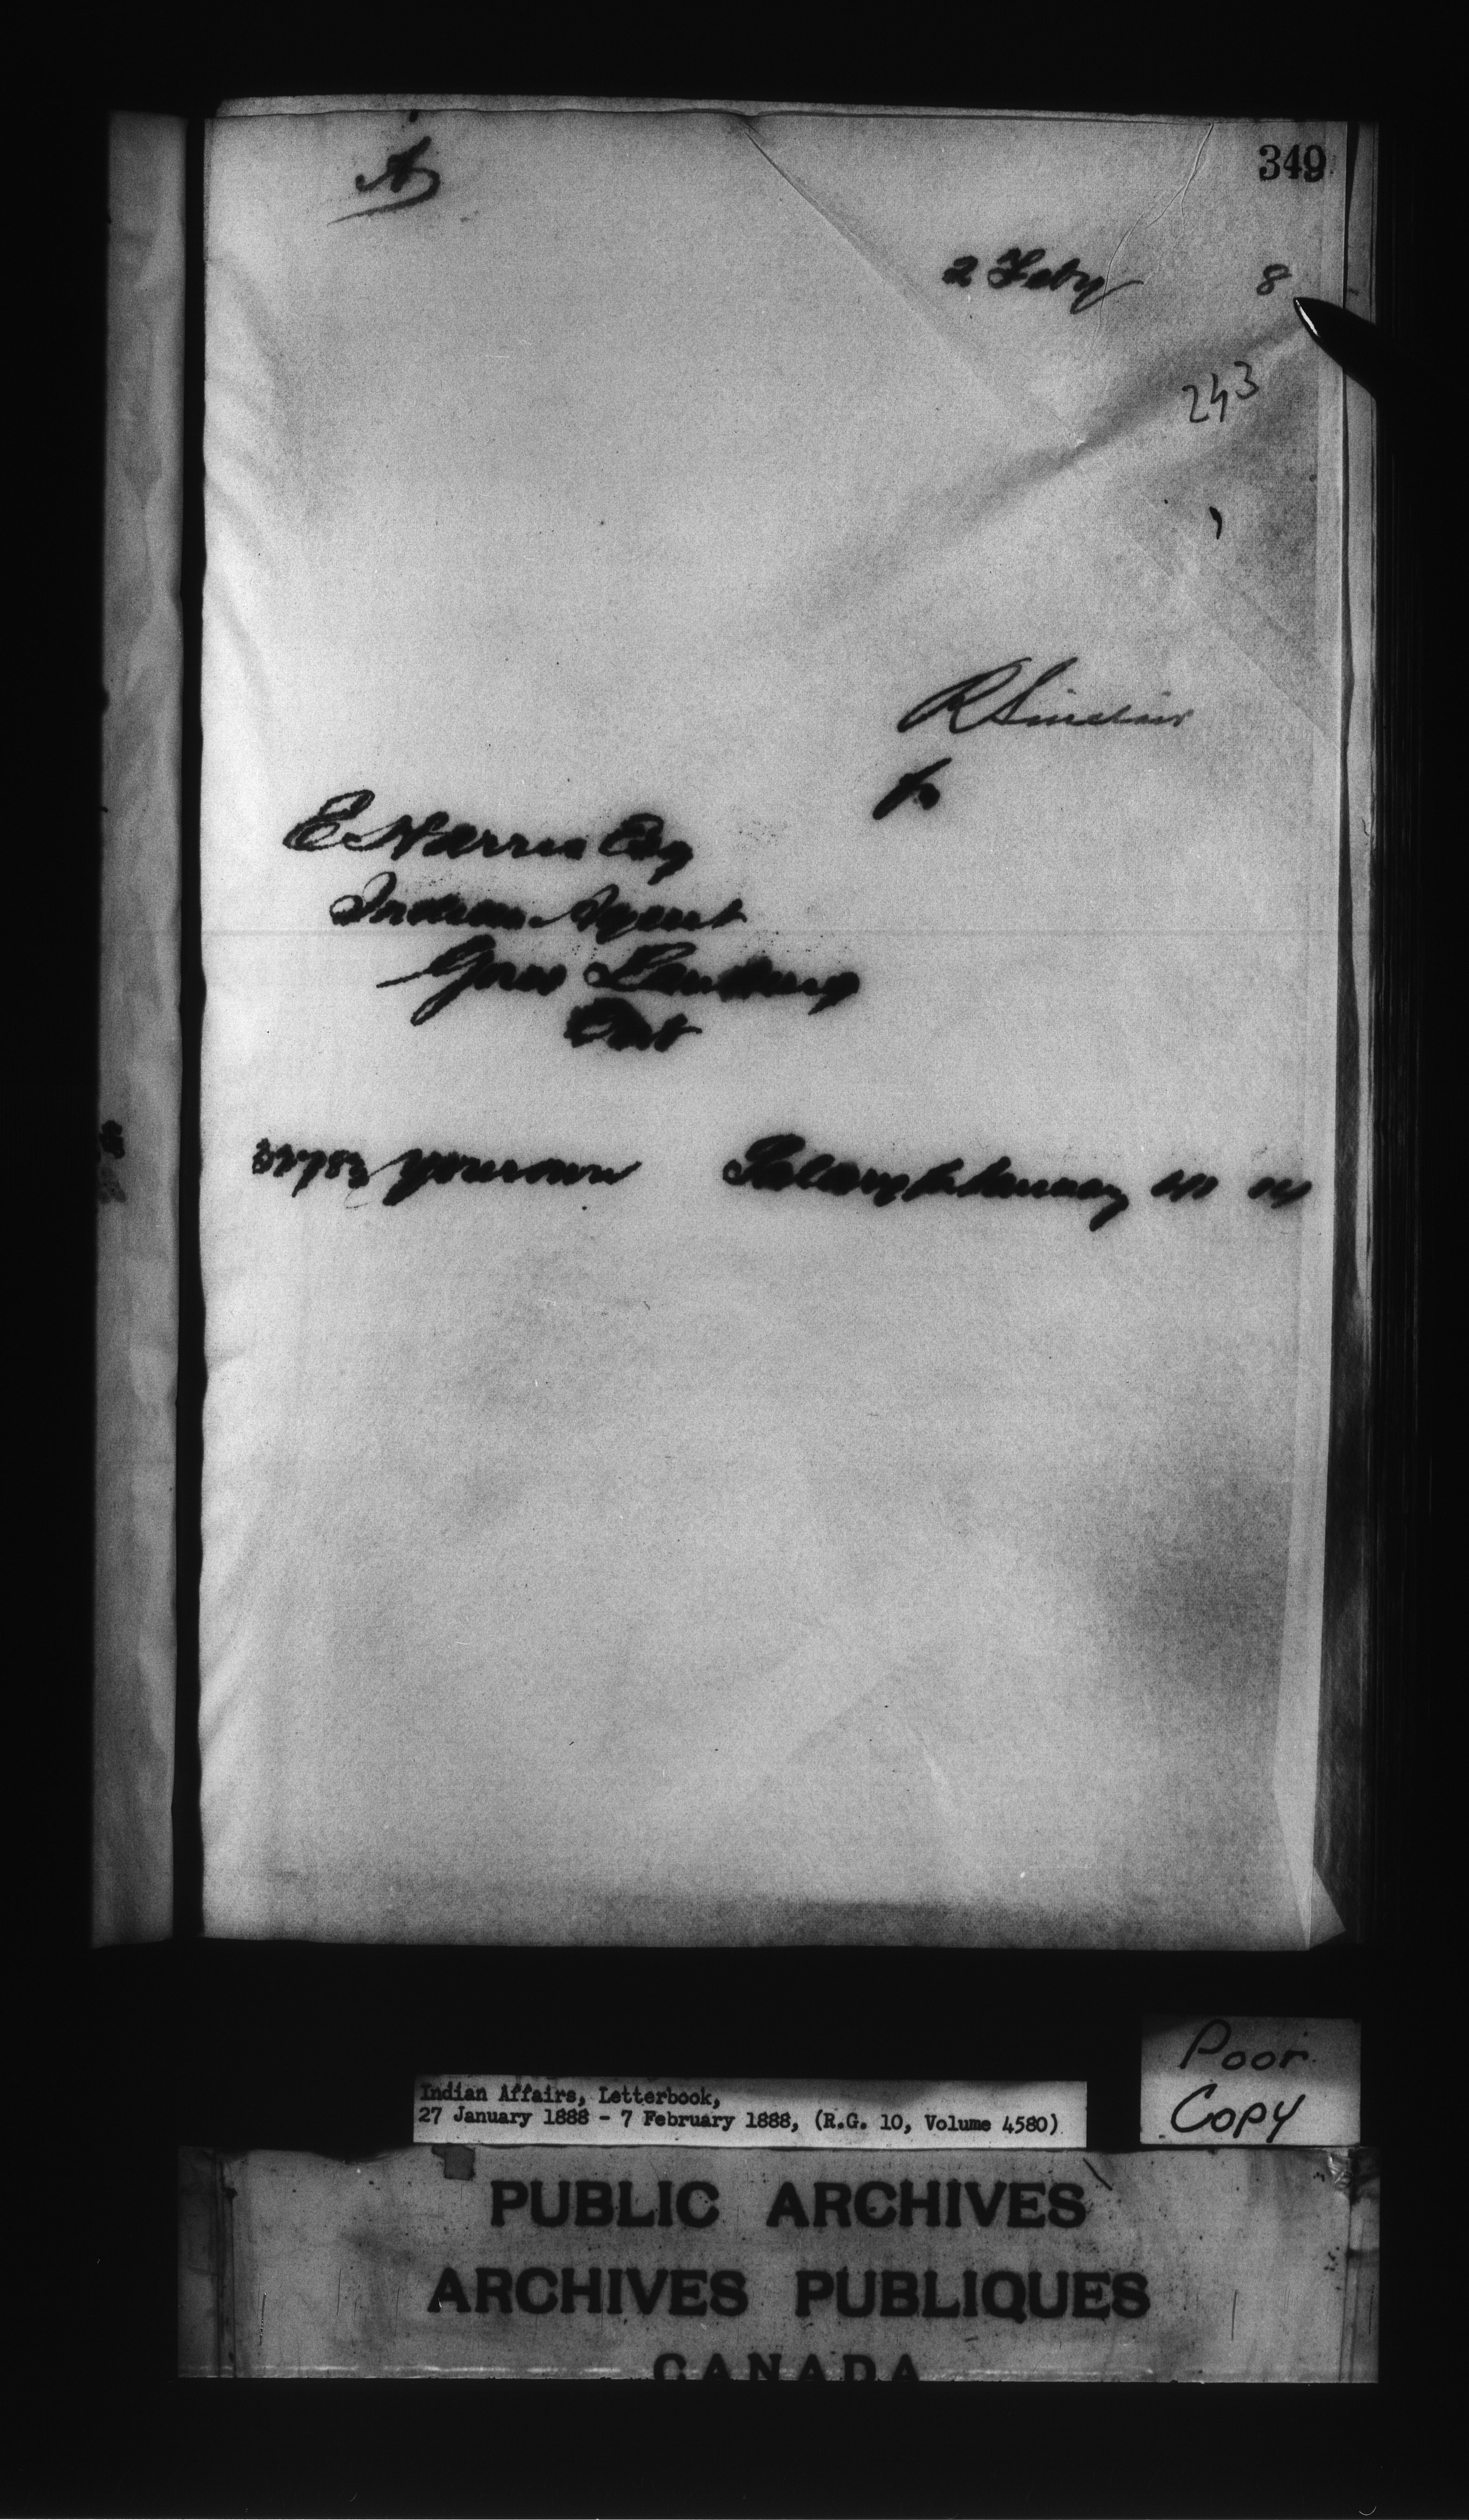 A
349
2 Feby 8
243
R Sinclair
E Harris Esq
Indian Agent
Gores Landing
Ont
Yourown Salary January
Poor
Copy
Indian Affairs, Letterbook,
27 January 1888 - 7 February 1888, (R.G. 10, Volume 4580)
PUBLIC ARCHIVES
ARCHIVES PUBLIQUES
CANADA